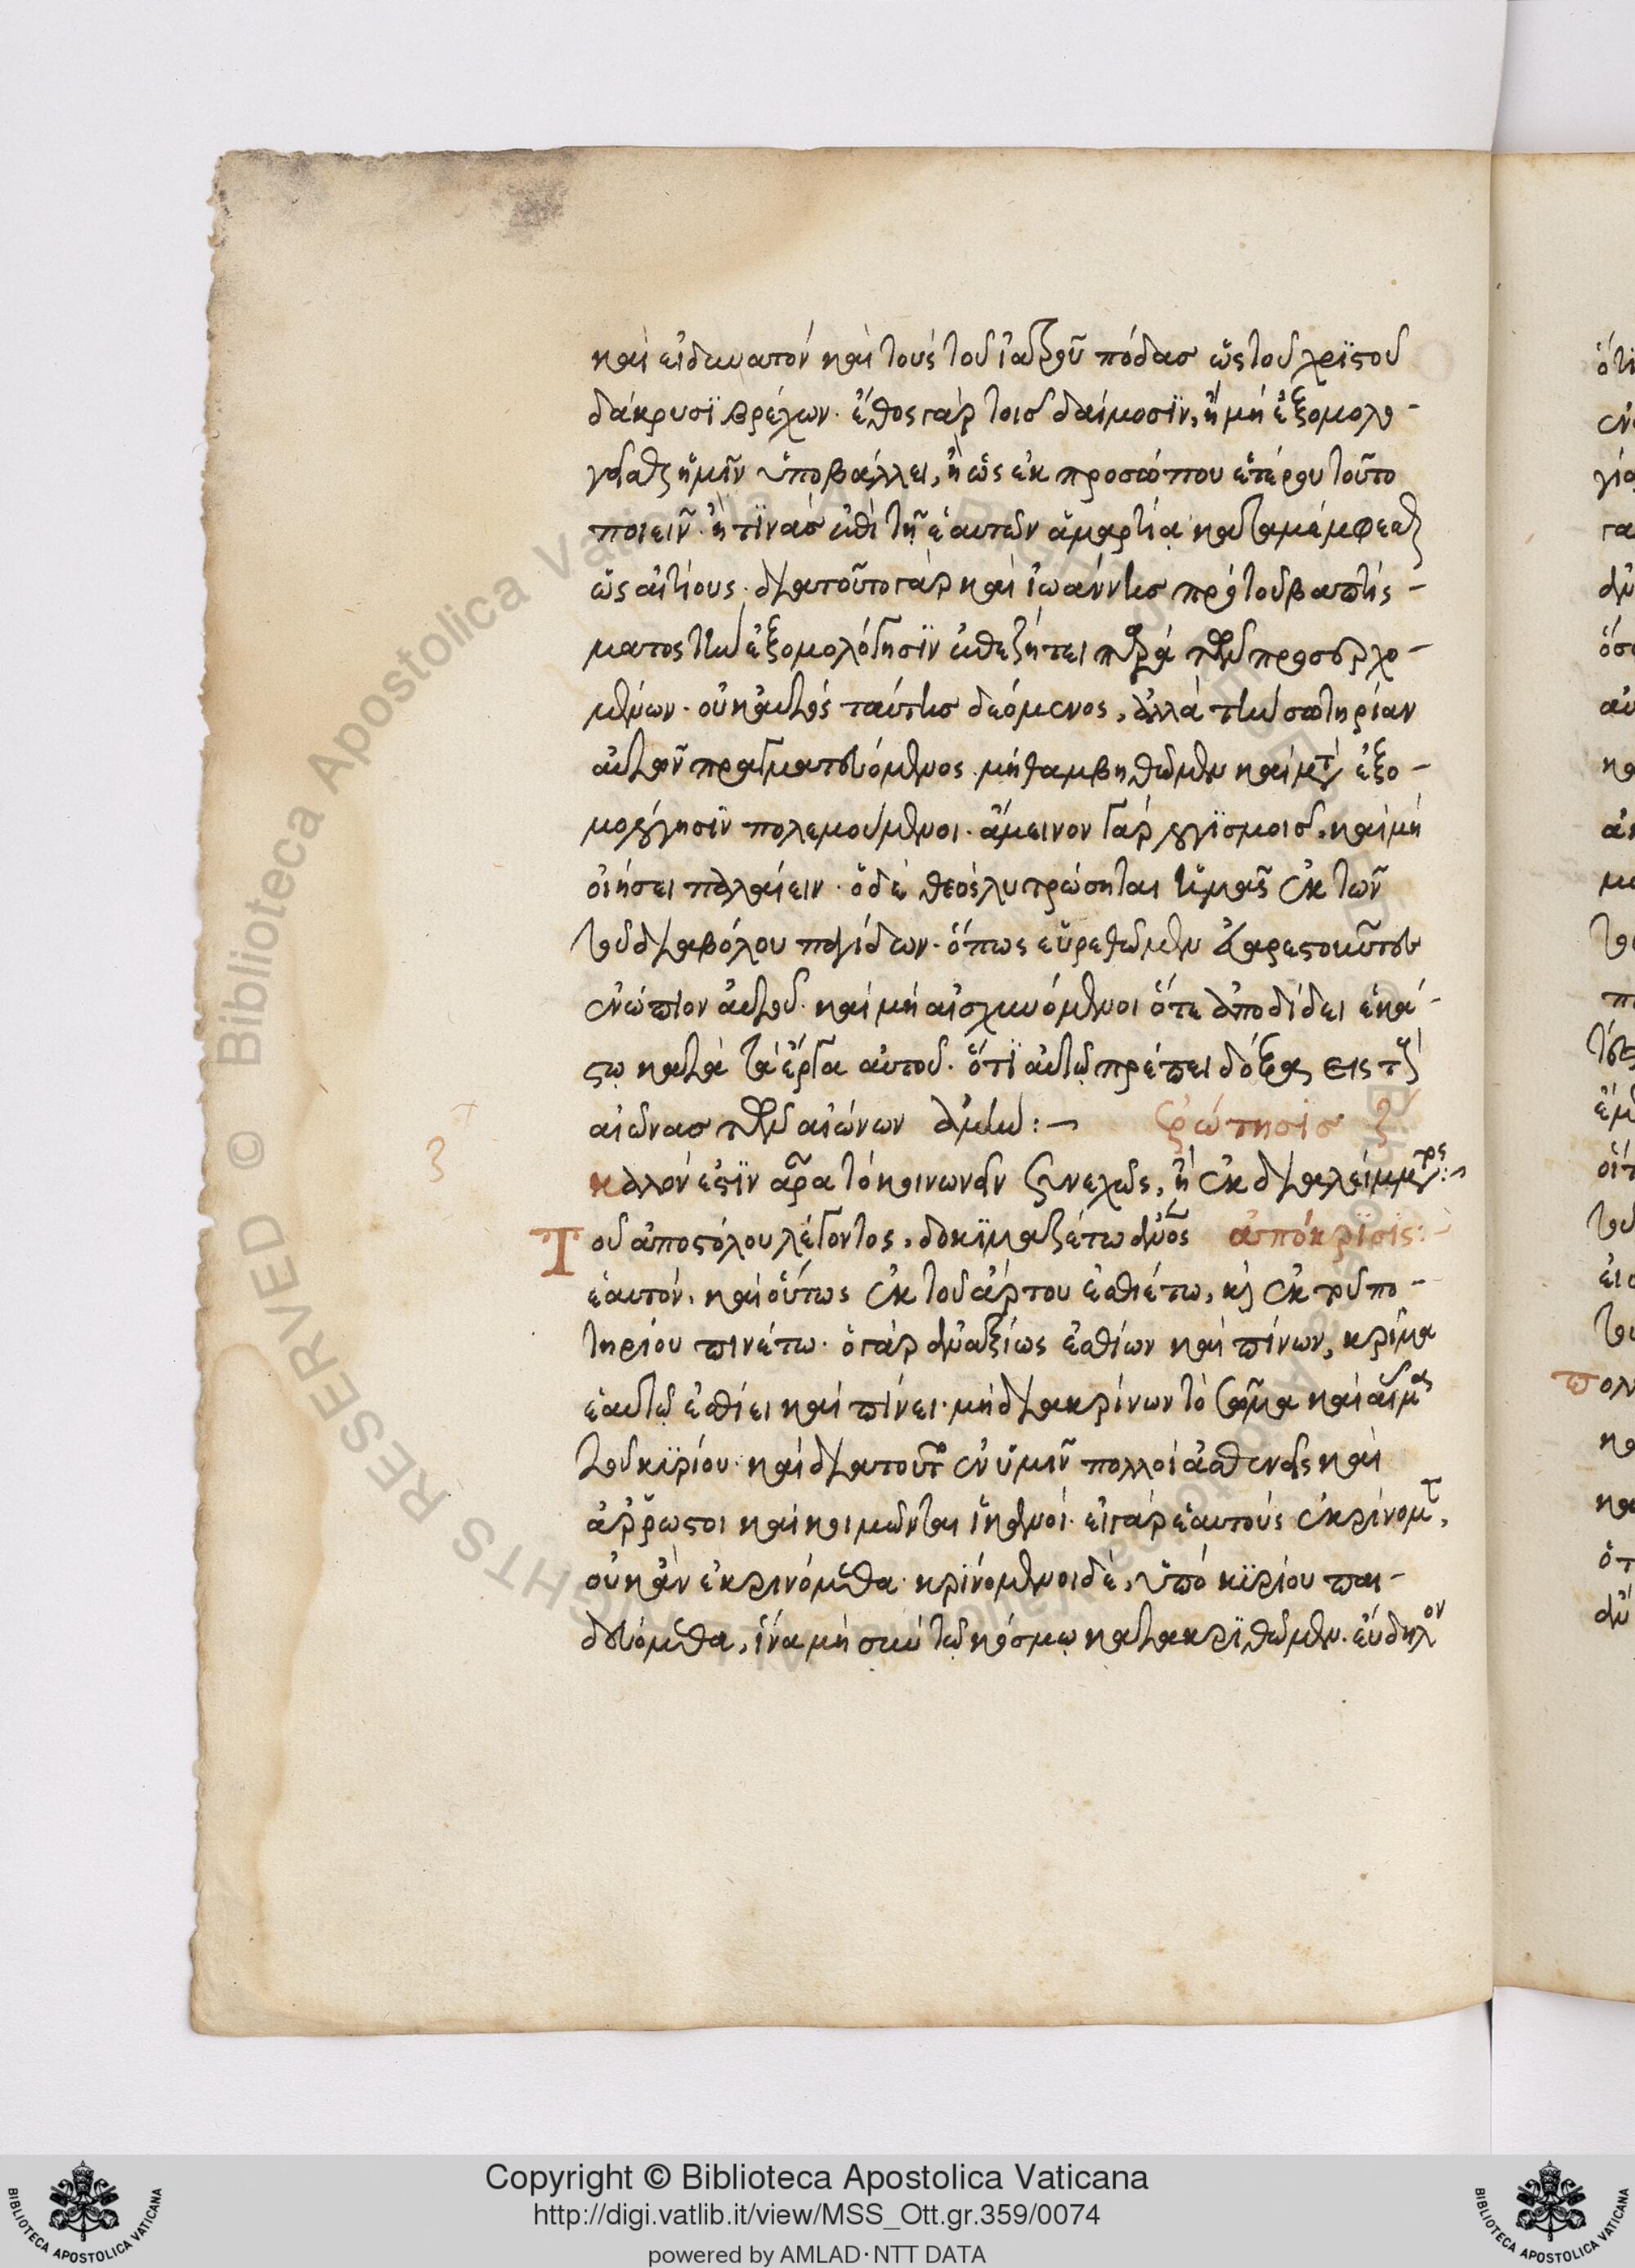 καὶ εἰ δυνατὸν καὶ τοὺς τοῦ ἰατροῦ πόδας ὡς τοῦ χριστοῦ
δάκρυσϊ βρέχων· ἔθος γὰρ τοῖς δαίμοσϊν, ἢ μὴ ἐξομολο-
γεῖσθαι ἡμῖν ὑποβάλλει, ἢ ὡς ἐκ προσώπου ἑτέρου τοῦτο
ποιεῖν· ἢ τϊνὰς ἐπὶ τῇ ἑαυτῶν ἁμαρτίᾳ καταμέμφεσθαι
ὡς αἰτίους· διατοῦτο γὰρ καὶ ἰωάννης πρὸ τοῦ βαπτίσ-
ματος τὴν ἐξομολόγησϊν ἐπεζήτει παρὰ τῶν προσερχο-
μένων· οὐκ αὐτὸς ταύτης δεόμενος, ἀλλὰ τὴν σωτηρίαν
αὐτῶν πραγματευόμενος· μὴ θαμβηθῶμεν καὶ μετὰ ἐξο-
μολόγησϊν πολεμούμενοι· ἄμεινον γὰρ λογϊσμοῖς, καὶ μὴ
οἰήσει παλαίειν· ὁ δὲ θεὸς λυτρώσηται ἡμᾶς ἐκ τῶν
τοῦ διαβόλου παγίδων· ὅπως εὑρεθῶμεν
ἐνώπιον αὐτοῦ· καὶ μὴ αἰσχυνόμενοι ὅτε ἀποδίδει ἑκά-
στῳ κατὰ τὰ ἔργα αὐτοῦ· ὅτϊ αὐτῷ πρέπει δόξα εἰς τοὺς
αἰῶνας τῶν αἰώνων ἀμήν:— ἐρώτησις ζ΄
ζ
καλόν ἐστϊν ἆρα τὸ κοινωνεῖν συνεχῶς, ἢ ἐκ διαλείμματος:—
Τοῦ ἀποστόλου λέγοντος, δοκϊμαζέτω ἄνθρωπος ἀπόκρϊσϊς:—
ἑαυτόν, καὶ οὕτως ἐκ τοῦ ἄρτου ἐσθιέτω, καὶ ἐκ τοῦ πο-
τηρίου πινέτω· ὁ γὰρ ἀναξίως ἐσθίων καὶ πίνων, κρίμα
ἑαυτῷ ἐσθίει καὶ πίνει· μὴ διακρίνων τὸ σῶμα καὶ αἷμα
τοῦ κυρίου· καὶ διατοῦτο ἐν ὑμῖν πολλοὶ ἀσθενεῖς καὶ
ἄρρωστοι καὶ κοιμῶνται ἱκανοί· εἰ γὰρ ἑαυτοὺς ἐκρίνομεν,
οὐκ ἂν ἐκρινόμεθα· κρϊνόμενοι δὲ, ὑπὸ κυρίου παι-
δευόμεθα, ἵνα μὴ σὺν τῷ κόσμῳ κατακρϊθῶμεν· εὔδηλον
Copyright © Biblioteca Apostolica Vaticana
http://digi.vatlib.it/view/MSS_Ott.gr.359/0074
powered by AMLAD·NTT DATA